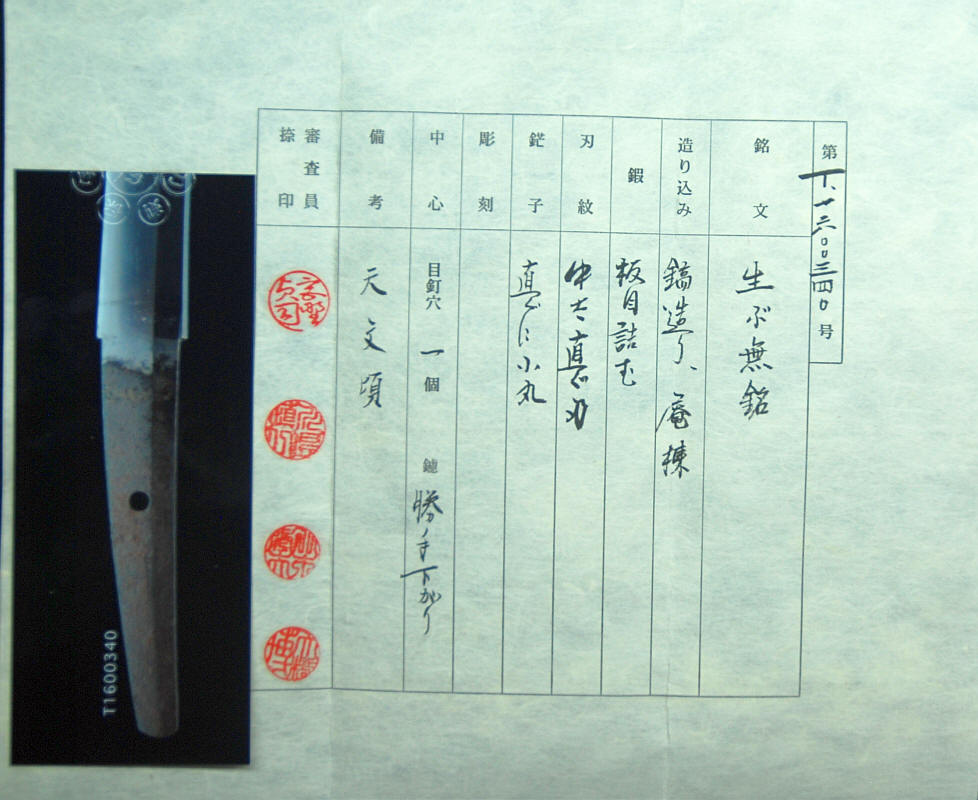 第 T、一六〇〇三四〇 号
銘文
生ぶ無銘
造り込み
鎬造り、庵棟
鍜
板目詰む
刃紋
中直ぐ刃
鋩子
直ぐに小丸
彫刻
中心
目釘穴 一個 鑢 勝手下がり
備考
天文頃
審査員
捺印
T1600340